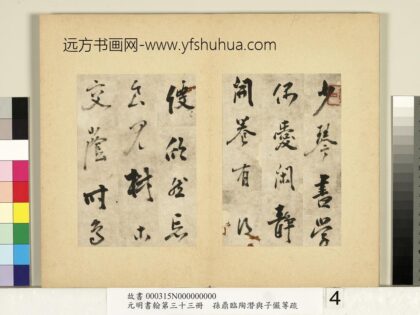 远方书画网-www.yfshuhua.com
少琴書學
偶愛閑靜
開卷有得
便欣然忘
食見樹木
交蔭時鳥
故書 000315N000000000
元明書翰第三十三冊 孫鼎臨陶潛與子儼等疏
4